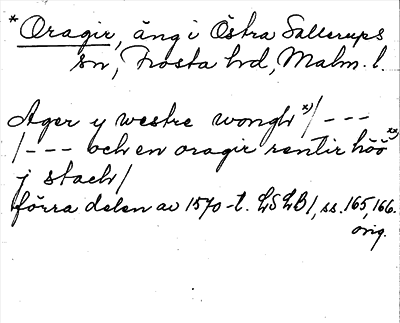 * Oragir, äng i Östra Sallerups
sn, Frosta hd, Malm. l.
Ager y westre wongh x) / - - -
/ - - - och en oragir rentir höö xx)
j stack /
förra delen av 1570-t. LSLB 1, ss. 165, 166.
orig.